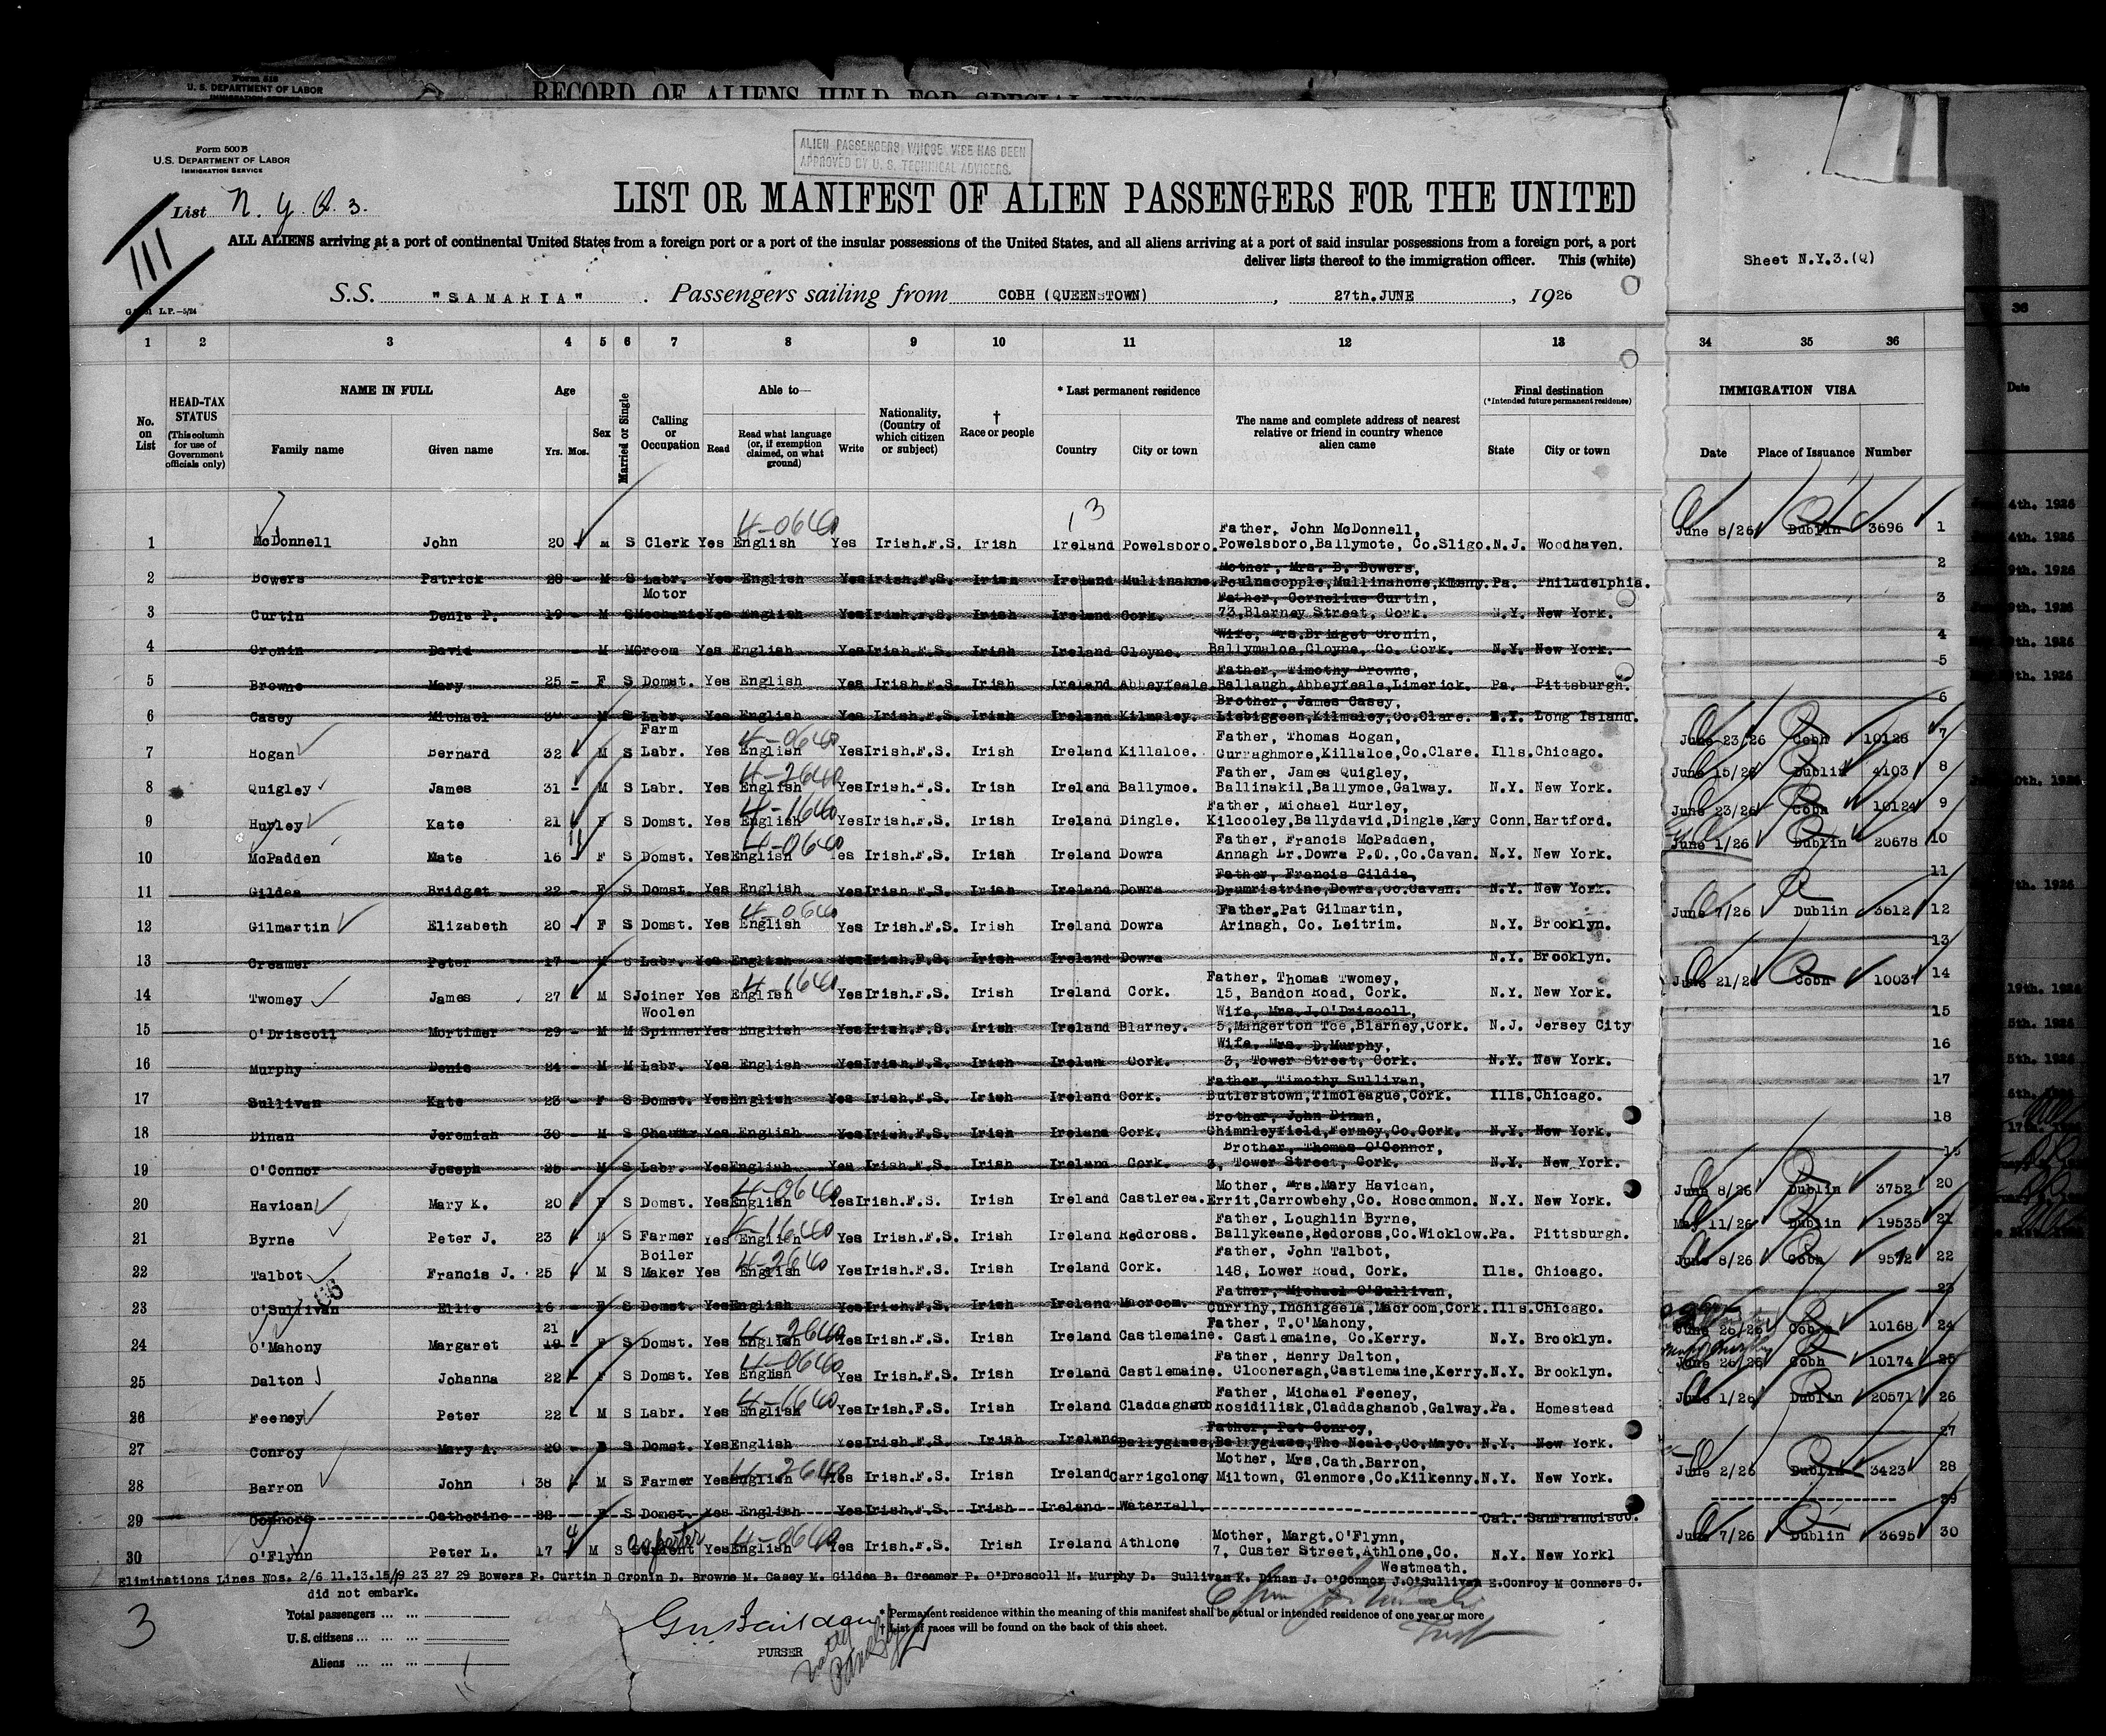 Form 518
U. S. DEPARTMENT OF LABOR
RECORD OF ALIENS HELD FOR SPECIAL
Form 500 B
U.S. DEPARTMENT OF LABOR
IMMIGRATION SERVICE
ALIEN PASSENGERS WHOSE VISE HAS BEEN
APPROVED BY U. S. TECHNICAL ADVISERS.
List N. Y. Q. 3.
LIST OR MANIFEST OF ALIEN PASSENGERS FOR THE UNITED
111
ALL ALIENS arriving at a port of continental United States from a foreign port or a port of the insular possessions of the United States, and all aliens arriving at a port of said insular possessions from a foreign port, a port
deliver lists thereof to the immigration officer. This (white)
Sheet N.Y.3.(Q)
S.S. "SAMARIA" Passengers sailing from COBH (QUEENSTOWN), 27th.JUNE, 1926
L.P.—5/24
1 2 3 4 5 6 7 8 9 10 11 12 13 34 35 36
No. on List
HEAD-TAX STATUS (This column for use of Government officials only)
NAME IN FULL Family name Given name
Age Yrs. Mos.
Sex
Married or Single
Calling or Occupation
Able to— Read Read what language (or, if exemption claimed, on what ground) Write
Nationality, (Country of which citizen or subject)
† Race or people
* Last permanent residence Country City or town
The name and complete address of nearest relative or friend in country whence alien came
Final destination (*Intended future permanent residence) State City or town
IMMIGRATION VISA Date Place of Issuance Number
13
1 McDonnell John 20 - M S Clerk Yes English 4-0640 Yes Irish.F.S. Irish Ireland Powelsboro. Father, John McDonnell, Powelsboro,Ballymote, Co.Sligo. N.J. Woodhaven. June 8/26 Dublin 3696 1
2 Bowers Patrick 28 - M S Labr. Yes English Yes Irish.F.S. Irish Ireland Mullinahne. Mother, Mrs. B. Bowers, Poulnacopple,Mullinahone,Kkenny. Pa. Philadelphia. 2
3 Curtin Denis P. 19 - M S Motor Mechanic Yes English Yes Irish.F.S. Irish Ireland Cork. Father, Cornelius Curtin, 73,Blarney Street, Cork. N.Y. New York. 3
4 Cronin David - M M Groom Yes English Yes Irish.F.S. Irish Ireland Cloyne. Wife, Mrs.Bridget Cronin, Ballymaloe,Cloyne, Co. Cork. N.Y. New York. 4
5 Browne Mary 25 - F S Domst. Yes English Yes Irish.F.S. Irish Ireland Abbeyfeale. Father, Timothy Browne, Ballaugh,Abbeyfeale,Limerick. Pa. Pittsburgh. 5
6 Casey Michael - M S Labr. Yes English Yes Irish.F.S. Irish Ireland Kilmaley. Brother, James Casey, Lisbiggeen,Kilmaley,Co.Clare. N.Y. Long Island. 6
7 Hogan Bernard 32 - M S Farm Labr. Yes English 4-0640 Yes Irish.F.S. Irish Ireland Killaloe. Father, Thomas Hogan, Curraghmore,Killaloe,Co.Clare. Ills. Chicago. June 23/26 Cobh 10128 7
8 Quigley James 31 - M S Labr. Yes English 4-2640 Yes Irish.F.S. Irish Ireland Ballymoe. Father, James Quigley, Ballinakil,Ballymoe,Galway. N.Y. New York. June 15/26 Dublin 4103 8
9 Hurley Kate 21 - F S Domst. Yes English 4-1640 Yes Irish.F.S. Irish Ireland Dingle. Father, Michael Hurley, Kilcooley,Ballydavid,Dingle,Kery Conn. Hartford. June 23/26 Cobh 10124 9
10 McPadden Kate 16 - F S Domst. Yes English 4-0640 Yes Irish.F.S. Irish Ireland Dowra Father, Francis McPadden, Annagh Lr.Dowra P.O.,Co.Cavan. N.Y. New York. June 1/26 Dublin 20678 10
11 Gildea Bridget 22 - F S Domst. Yes English Yes Irish F.S. Irish Ireland Dowra Father, Francis Gildia, Drumristrine,Dowra,Co.Cavan. N.Y. New York. 11
12 Gilmartin Elizabeth 20 - F S Domst. Yes English 4-0640 Yes Irish.F.S. Irish Ireland Dowra Father,Pat Gilmartin, Arinagh, Co. Leitrim. N.Y. Brooklyn. June 7/26 Dublin 3612 12
13 Creamer Peter 17 - M S Labr. Yes English Yes Irish.F.S. Irish Ireland Dowra N.Y. Brooklyn. 13
14 Twomey James 27 M S Joiner Yes English 4-1640 Yes Irish.F.S. Irish Ireland Cork. Father, Thomas Twomey, 15, Bandon Road, Cork. N.Y. New York. June 21/26 Cobh 10037 14
15 O'Driscoll Mortimer 29 - M M Woolen Spinner Yes English Yes Irish.F.S. Irish Ireland Blarney. Wife, Mrs.J.O'Driscoll, 5,Mangerton Tce,Blarney,Cork. N.J. Jersey City 15
16 Murphy Denis - M M Labr. Yes English Yes Irish.F.S. Irish Irelan Cork. Wife, Mrs. D.Murphy, 3, Tower Street, Cork. N.Y. New York. 16
17 Sullivan Kate 23 - F S Domst. Yes English Yes Irish.F.S. Irish Ireland Cork. Father, Timothy Sullivan, Butlerstown,Timoleague,Cork. Ills. Chicago. 17
18 Dinan Jeremiah 30 - M S Yes English Yes Irish.F.S. Irish Ireland Cork. Brother, John Dinan, Chimnleyfield,Fermoy,Co.Cork. N.Y. New York. 18
19 O'Connor Joseph 25 - M S Labr. Yes English Yes Irish.F.S. Irish Ireland Cork. Brother, Thomas O'Connor, 3, Tower Street, Cork. N.Y. New York. 19
20 Havican Mary K. 20 F S Domst. Yes English 4-0640 Yes Irish.F.S. Irish Ireland Castlerea. Mother, Mrs.Mary Havican, Errit,Carrowbehy,Co. Roscommon. N.Y. New York. June 8/26 Dublin 3752 20
21 Byrne Peter J. 23 M S Farmer Yes English 4-1640 Yes Irish.F.S. Irish Ireland Redcross. Father, Loughlin Byrne, Ballykeane,Redcross,Co.Wicklow. Pa. Pittsburgh. May 11/26 Dublin 19535 21
22 Talbot Francis J. 25 M S Boiler Maker Yes English 4-2640 Yes Irish.F.S. Irish Ireland Cork. Father, John Talbot, 148, Lower Road, Cork. Ills. Chicago. June 8/26 Cobh 9572 22
23 O'Sullivan Ellie 16 - F S Domst. Yes English Yes Irish.F.S. Irish Ireland Macroom. Father, Michael O'Sullivan, Currihy,Inchigeela,Macroom,Cork. Ills. Chicago. 23
24 O'Mahony Margaret 21 19 - F S Domst. Yes English 4-2640 Yes Irish.F.S. Irish Ireland Castlemaine. Father, T.O'Mahony, Castlemaine, Co.Kerry. N.Y. Brooklyn. June 26/26 Cobh 10168 24
25 Dalton Johanna 22 - F S Domst. Yes English 4-0640 Yes Irish.F.S. Irish Ireland Castlemaine. Father, Henry Dalton, Clooneragh,Castlemaine,Kerry. N.Y. Brooklyn. June 26/26 Cobh 10174 25
26 Feeney Peter 22 - M S Labr. Yes English 4-1640 Yes Irish.F.S. Irish Ireland Claddaghanob Father, Michael Feeney, Rosidilisk,Claddaghanob,Galway. Pa. Homestead June 1/26 Dublin 20571 26
27 Conroy Mary A. 20 - S Domst. Yes English Yes Irish.F.S. Irish Ireland Ballyglass, Father, Pat Conroy, Ballyglass,The Neale,Co.Mayo. N.Y. New York. 27
28 Barron John 38 M S Farmer Yes English 4-2640 Yes Irish.F.S. Irish Ireland Carrigcloney Mother, Mrs,Cath.Barron, Miltown, Glenmore,Co.Kilkenny. N.Y. New York. June 2/26 Dublin 3423 28
29 Connors Catherine - F S Domst. Yes English Yes Irish.F.S. Irish Ireland Waterfall. Cal. SanFrancisco. 29
30 O'Flynn Peter L. 17 M S Student Yes English 4-0640 Yes Irish.F.S. Irish Ireland Athlone Mother, Margt.O'Flynn, 7, Custer Street,Athlone,Co. Westmeath. N.Y. New Yorkl June 7/26 Dublin 3695 30
Eliminations Lines Nos. 2/6 11.13.15/19 23 27 29 Bowers P. Curtin D Cronin D. Browne M. Casey M. Gildea B. Creamer P. O'Droscoll M. Murphy D. Sullivan K. Dinan J. O'Connor J.O'Sullivan E.Conroy M Conners C.
did not embark.
3
Total passengers
U.S. citizens
Aliens
PURSER
* Permanent residence within the meaning of this manifest shall be actual or intended residence of one year or more
† List of races will be found on the back of this sheet.